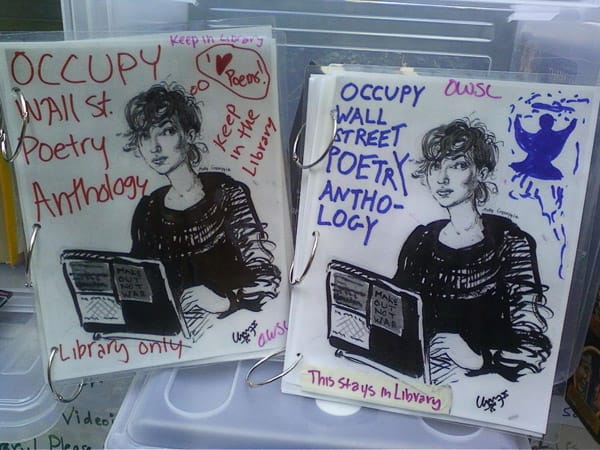 Keep in Library
OCCUPY
WAll St.
Poetry
Anthology
I ♥
Poems!
Keep
in the
Library
MAKE
OUT
NOT
WAR
Library only
OWSL
OCCUPY
WALL
STREET
POETRY
ANTHO-
LOGY
OWSL
MAKE
OUT
NOT
WAR
This stays in Library
Video
Please